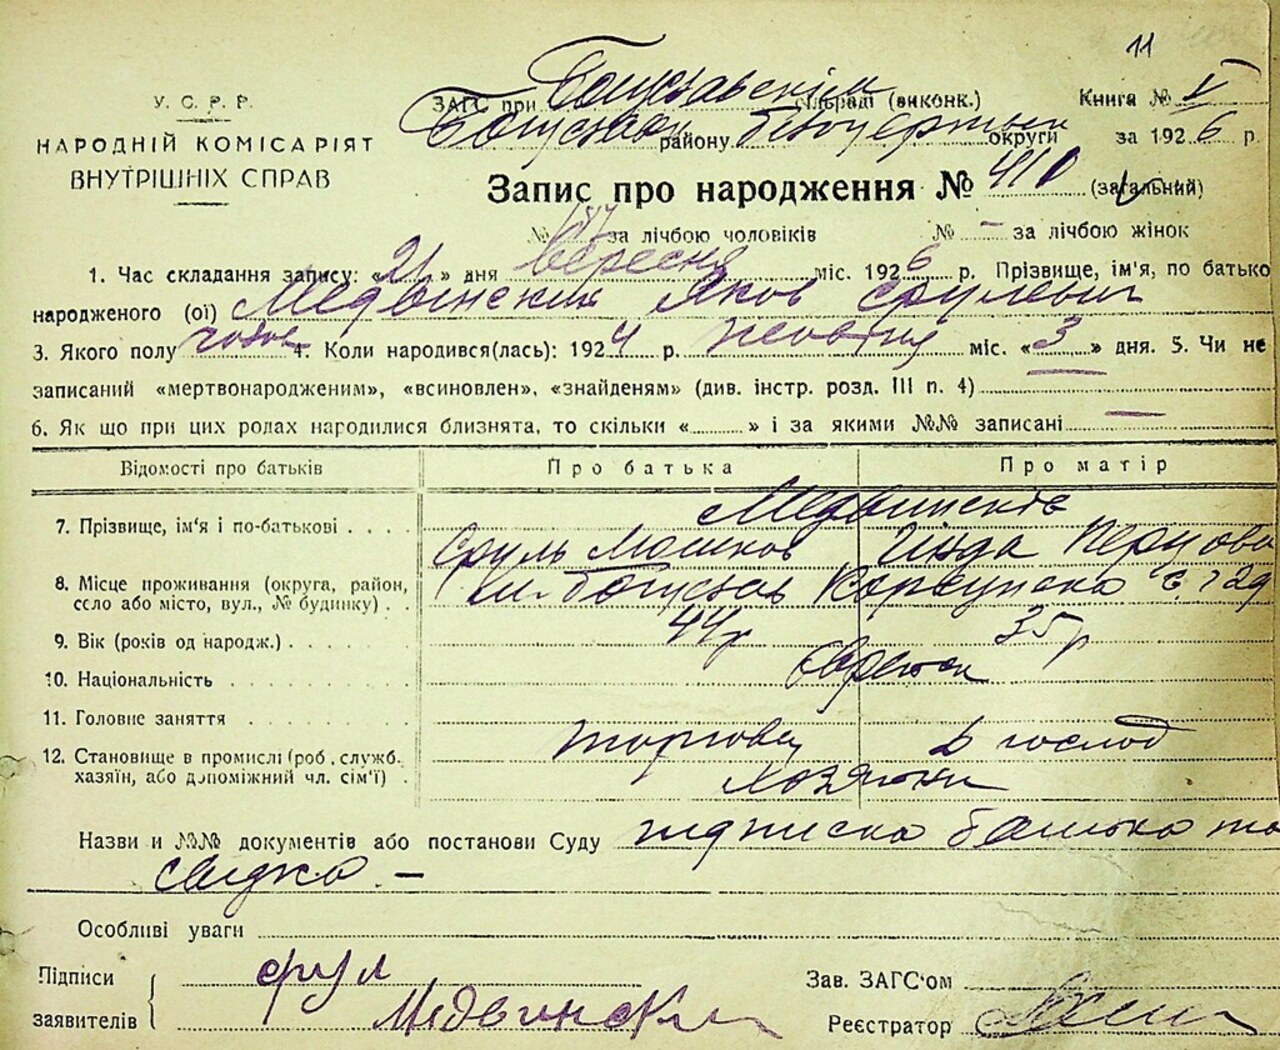 11
У. С. Р. Р.
НАРОДНІЙ КОМІСАРІЯТ
ВНУТРІШНІХ СПРАВ
ЗАГС при Богуславскім сільраді (виконк.) Книга № V
Богуслав району Білоцерківськ округи за 1926 р.
Запис про народження № 410 (загальний)
№ 187 за лічбою чоловіків № – за лічбою жінок
1. Час складання запису: «21» дня вересня міс. 1926 р. Прізвище, ім'я, по батько
народженого (ої) Медвинский Яков Срулевич
3. Якого полу чолов 4. Коли народився(лась): 1924 р. жовтня міс. «3» дня. 5. Чи не
записаний «мертвонародженим», «всиновлен», «знайденям» (див. інстр. розд. III п. 4)
6. Як що при цих родах народилися близнята, то скільки « » і за якими №№ записані —
Відомості про батьків Про батька Про матір
Медвинсків
7. Прізвище, ім'я і по-батькові Сруль Мошков Гинда Перцова
8. Місце проживання (округа, район, село або місто, вул., № будинку) м. Богуслав Корсунска
9. Вік (років од народж.) 44 р 35 р
10. Національність Євреи
11. Головне заняття
торговец Д господ
12. Становище в промислі (роб., служб. хазяїн, або допоміжний чл. сім'ї) хозяин
Назви и №№ документів або постанови Суду підписка батька та
свідка. —
Особливі уваги
Підписи Срул Зав. ЗАГС'ом
заявителів Медвински Реєстратор